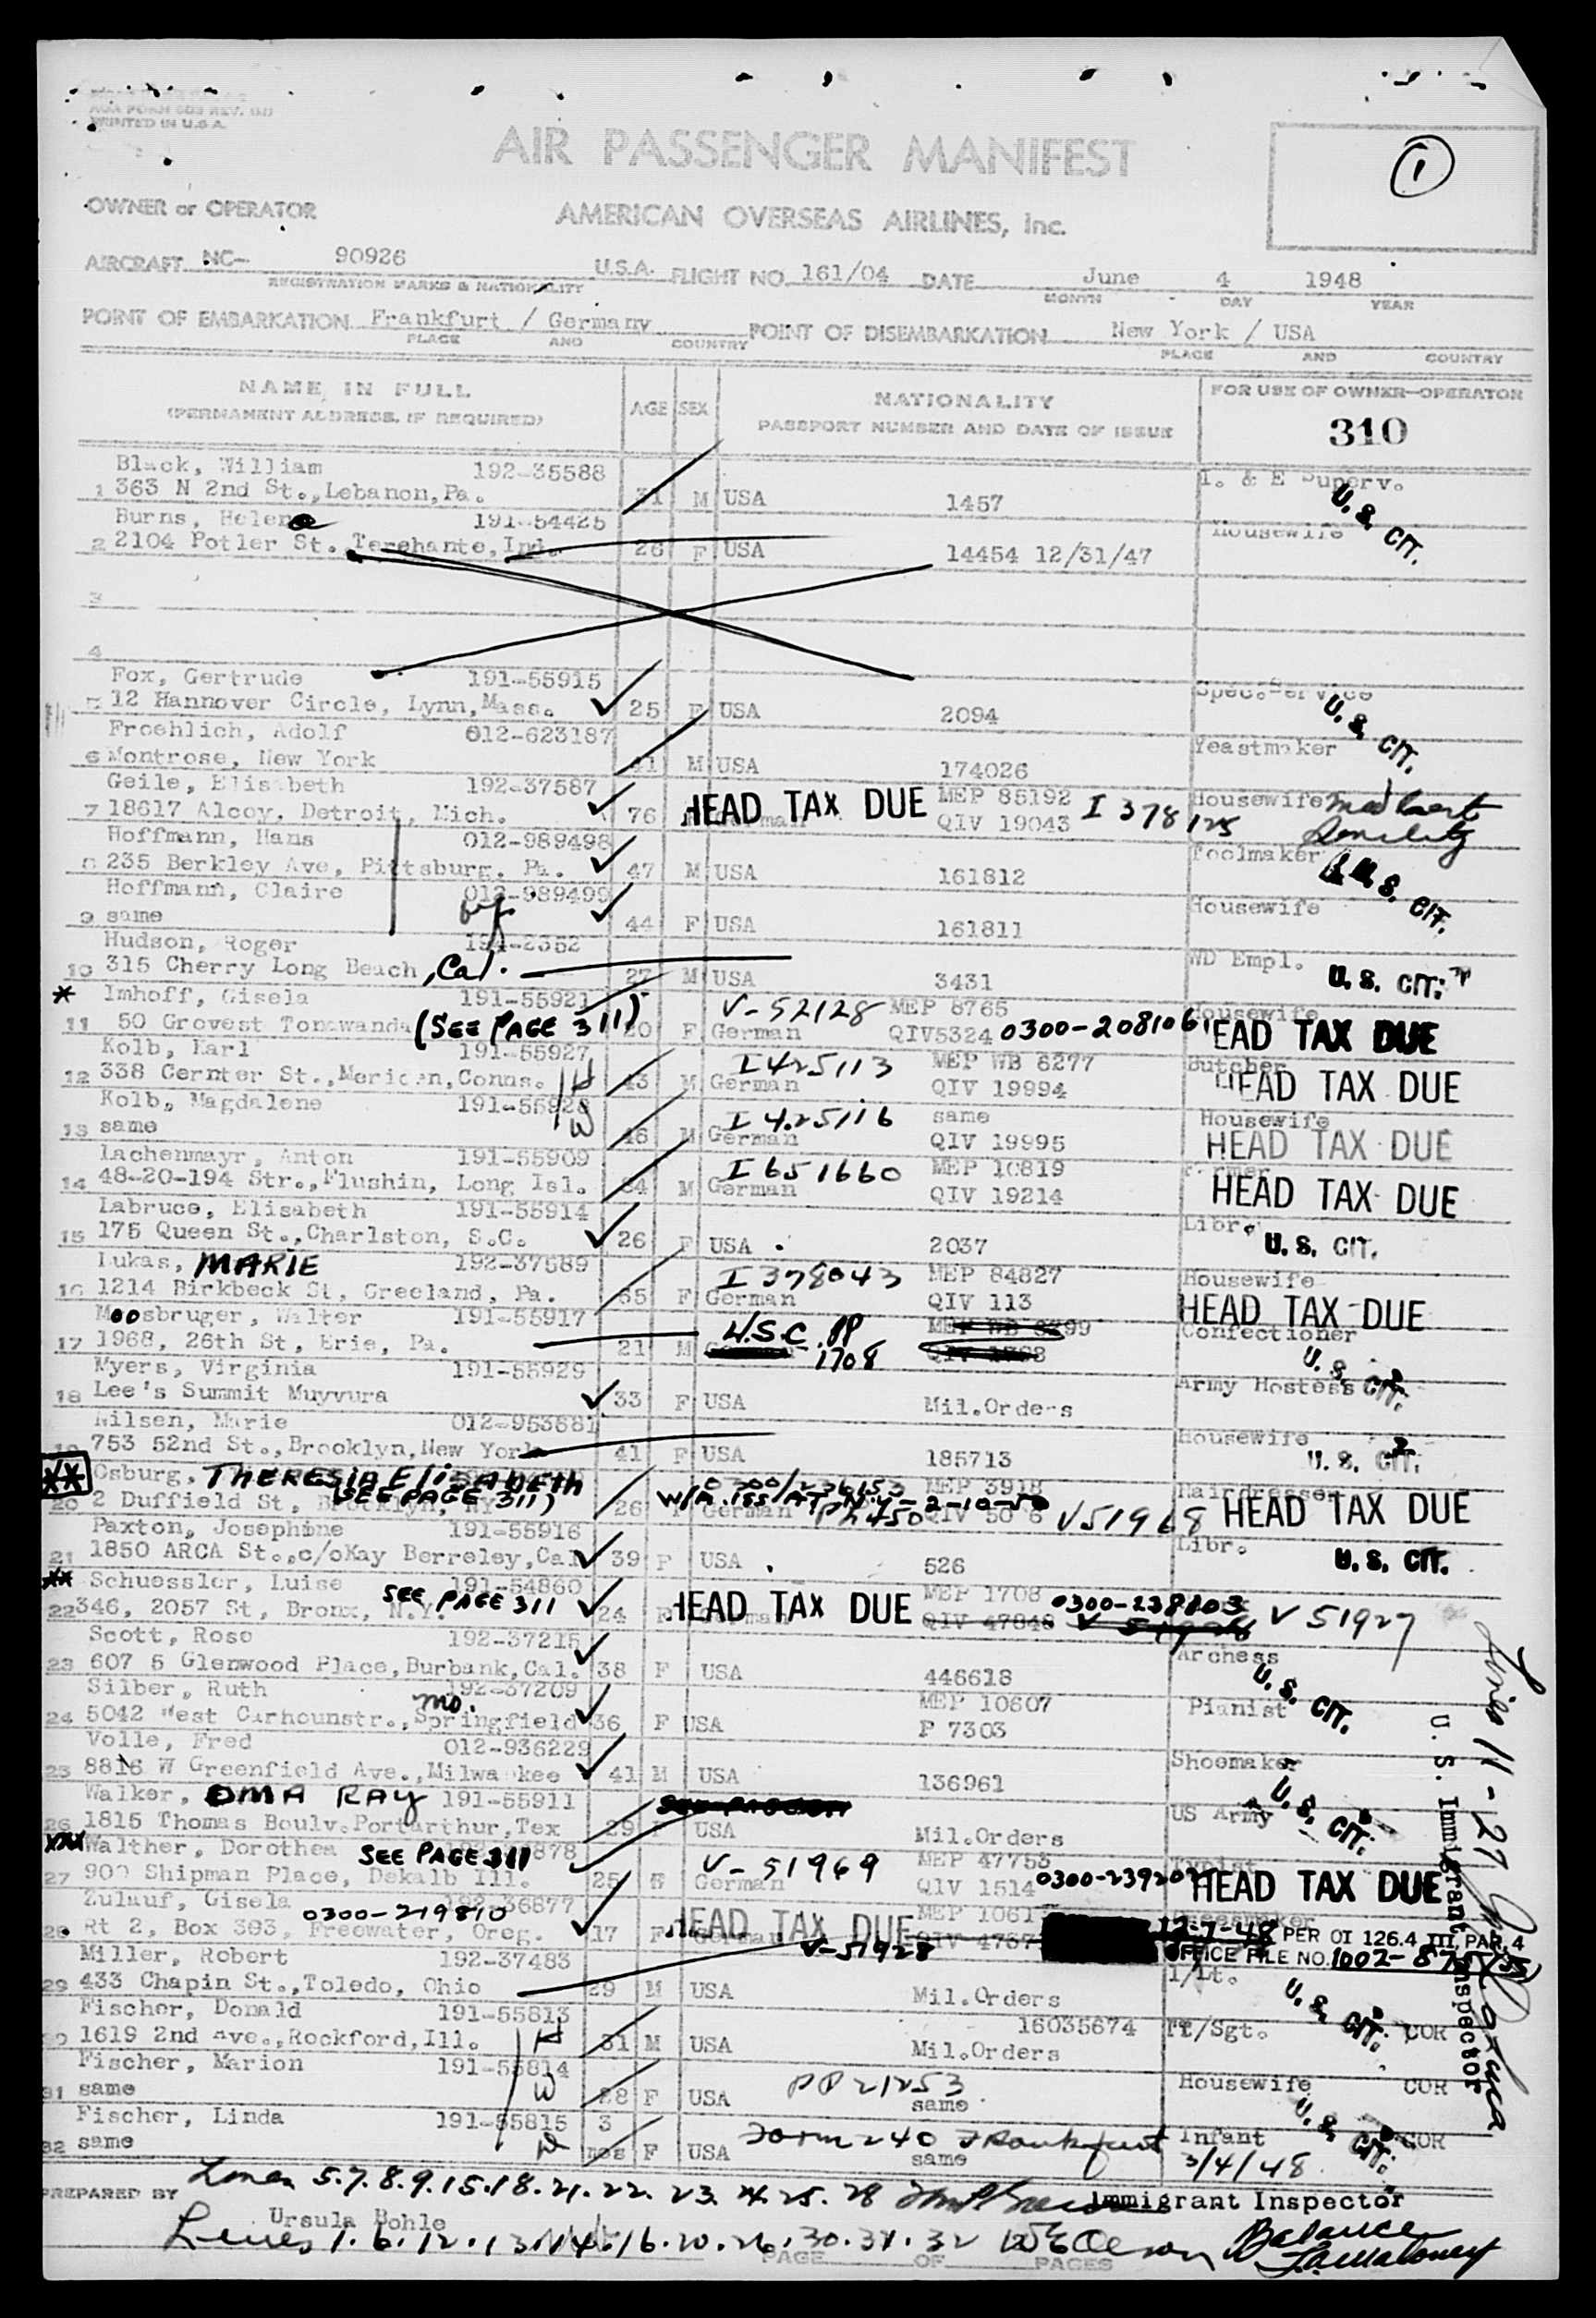 AOA FORM 603 REV.
PRINTED IN U.S.A.
AIR PASSENGER MANIFEST
1
OWNER or OPERATOR AMERICAN OVERSEAS AIRLINES, Inc.
AIRCRAFT NC- 90926 U.S.A. FLIGHT NO. 161/04 DATE June 4 1948
REGISTRATION MARKS & NATIONALITY MONTH DAY YEAR
POINT OF EMBARKATION Frankfurt / Germany POINT OF DISEMBARKATION New York / USA
PLACE AND COUNTRY PLACE AND COUNTRY
NAME IN FULL AGE SEX NATIONALITY FOR USE OF OWNER-OPERATOR
(PERMANENT ADDRESS, IF REQUIRED) PASSPORT NUMBER AND DATE OF ISSUE
310
Black, William 192-35588 I. & E Superv.
1 363 N 2nd St., Lebanon, Pa. 31 M USA 1457 U. S. CIT.
Burns, Helen 191-54425 Housewife
2 2104 Potler St. Terehante, Ind. 26 F USA 14454 12/31/47
3
4
Fox, Gertrude 191-55915 Spec. Service
5 12 Hannover Circle, Lynn, Mass. 25 F USA 2094 U. S. CIT.
Froehlich, Adolf 012-623187 Yeastmaker
6 Montrose, New York 41 M USA 174026
Geile, Elisabeth 192-37587 HEAD TAX DUE MEP 85192 Housewife
7 18617 Alcoy, Detroit, Mich. 76 QIV 19043 I 378125
Hoffmann, Hans 012-989498 Toolmaker
8 235 Berkley Ave, Pittsburg. Pa. 47 M USA 161812 U. S. CIT.
Hoffmann, Claire 012-989499 Housewife
9 same 44 F USA 161811
Hudson, Roger 2352 WD Empl.
10 315 Cherry Long Beach, Cal. 27 M USA 3431 U. S. CIT.
* Imhoff, Gisela 191-55921 V-52128 MEP 8765 Housewife
11 50 Grovest Tonawanda (SEE PAGE 311) F German QIV5324 0300-208106 HEAD TAX DUE
Kolb, Karl 191-55927 I 425113 MEP WB 6277 Butcher
12 338 Cernter St., Meriden, Conns. H 43 M German QIV 19994 HEAD TAX DUE
Kolb, Magdalene 191-55928 I 425116 same Housewife
13 same W 46 M German QIV 19995 HEAD TAX DUE
Lachenmayr, Anton 191-55909 I 651660 MEP 10819 Farmer
14 48-20-194 Str., Flushin, Long Isl. M German QIV 19214 HEAD TAX DUE
Labruce, Elisabeth 191-55914 Libr.
15 175 Queen St., Charlston, S.C. 26 F USA 2037 U. S. CIT.
Lukas, MARIE 192-37589 I 378043 MEP 84827 Housewife
16 1214 Birkbeck St, Greeland, Pa. F German QIV 113 HEAD TAX DUE
Moosbruger, Walter 191-55917 U.S.C. PP Confectioner
17 1968, 26th St, Erie, Pa. 21 M 1708 U. S. CIT.
Myers, Virginia 191-55929 Army Hostess
18 Lee's Summit Muyvura 33 F USA Mil.Orders
Nilsen, Marie 012-953681 Housewife
19 753 52nd St., Brooklyn, New York 41 F USA 185713 U. S. CIT.
** Osburg, THERESIA ELISABETH MEP 3918 Hairdresser
20 2 Duffield St, SEE PAGE 311) 26 German V51968 HEAD TAX DUE
Paxton, Josephine 191-55916 Libr.
21 1850 ARCA St., c/oKay Berreley, Cal 39 F USA 526 U. S. CIT.
** Schuessler, Luise 191-54860 SEE PAGE 311 HEAD TAX DUE MEP 1708 0300-238803
22 346, 2057 St, Bronx, N.Y. 24 QIV 47848 V 51927
Scott, Rose 192-37215 Archess
23 607 5 Glenwood Place, Burbank, Cal. 38 F USA 446618 U. S. CIT.
Silber, Ruth 192-37209 MEP 10607 Pianist
24 5042 West Carhounstr., Springfield Mo. 36 F USA P 7303
Volle, Fred 012-936229 Shoemaker
25 8816 W Greenfield Ave., Milwaukee 41 M USA 136961
Walker, OMA RAY 191-55911 US Army
26 1815 Thomas Boulv. Portarthur, Tex 29 F USA Mil.Orders U. S. CIT.
*** Walther, Dorothea SEE PAGE 311 V-51969 MEP 47753 Typist
27 900 Shipman Place, Dekalb Ill. 25 German QIV 1514 HEAD TAX DUE
Zulauf, Gisela 192-36877 0300-219810 HEAD TAX DUE
28 Rt 2, Box 393, Freewater, Oreg. 17 F V-51928 12-7-48 PER OI 126.4 III, PAR. 4
OFFICE FILE NO. 1002-
Miller, Robert 192-37483 1/Lt.
29 433 Chapin St., Toledo, Ohio 29 M USA Mil.Orders U. S. CIT.
Fischer, Donald 191-55813 16035674 T/Sgt. COR
30 1619 2nd Ave., Rockford, Ill. H 31 M USA Mil.Orders
Fischer, Marion 191-55814 PP 21253 Housewife COR
31 same W 28 F USA same
Fischer, Linda 191-55815 3 Form 240 Frankfurt Infant COR
32 same mos F USA same 3/4/48 U. S. CIT.
Lines 11-27
U. S. Immigrant Inspector
Lines 5.7.8.9.15.18.21.22.23.24.25.28 Immigrant Inspector
PREPARED BY Ursula Bohle
Lines 1.6.12.13.14.16.20.26.30.31.32 Balance
PAGE OF PAGES